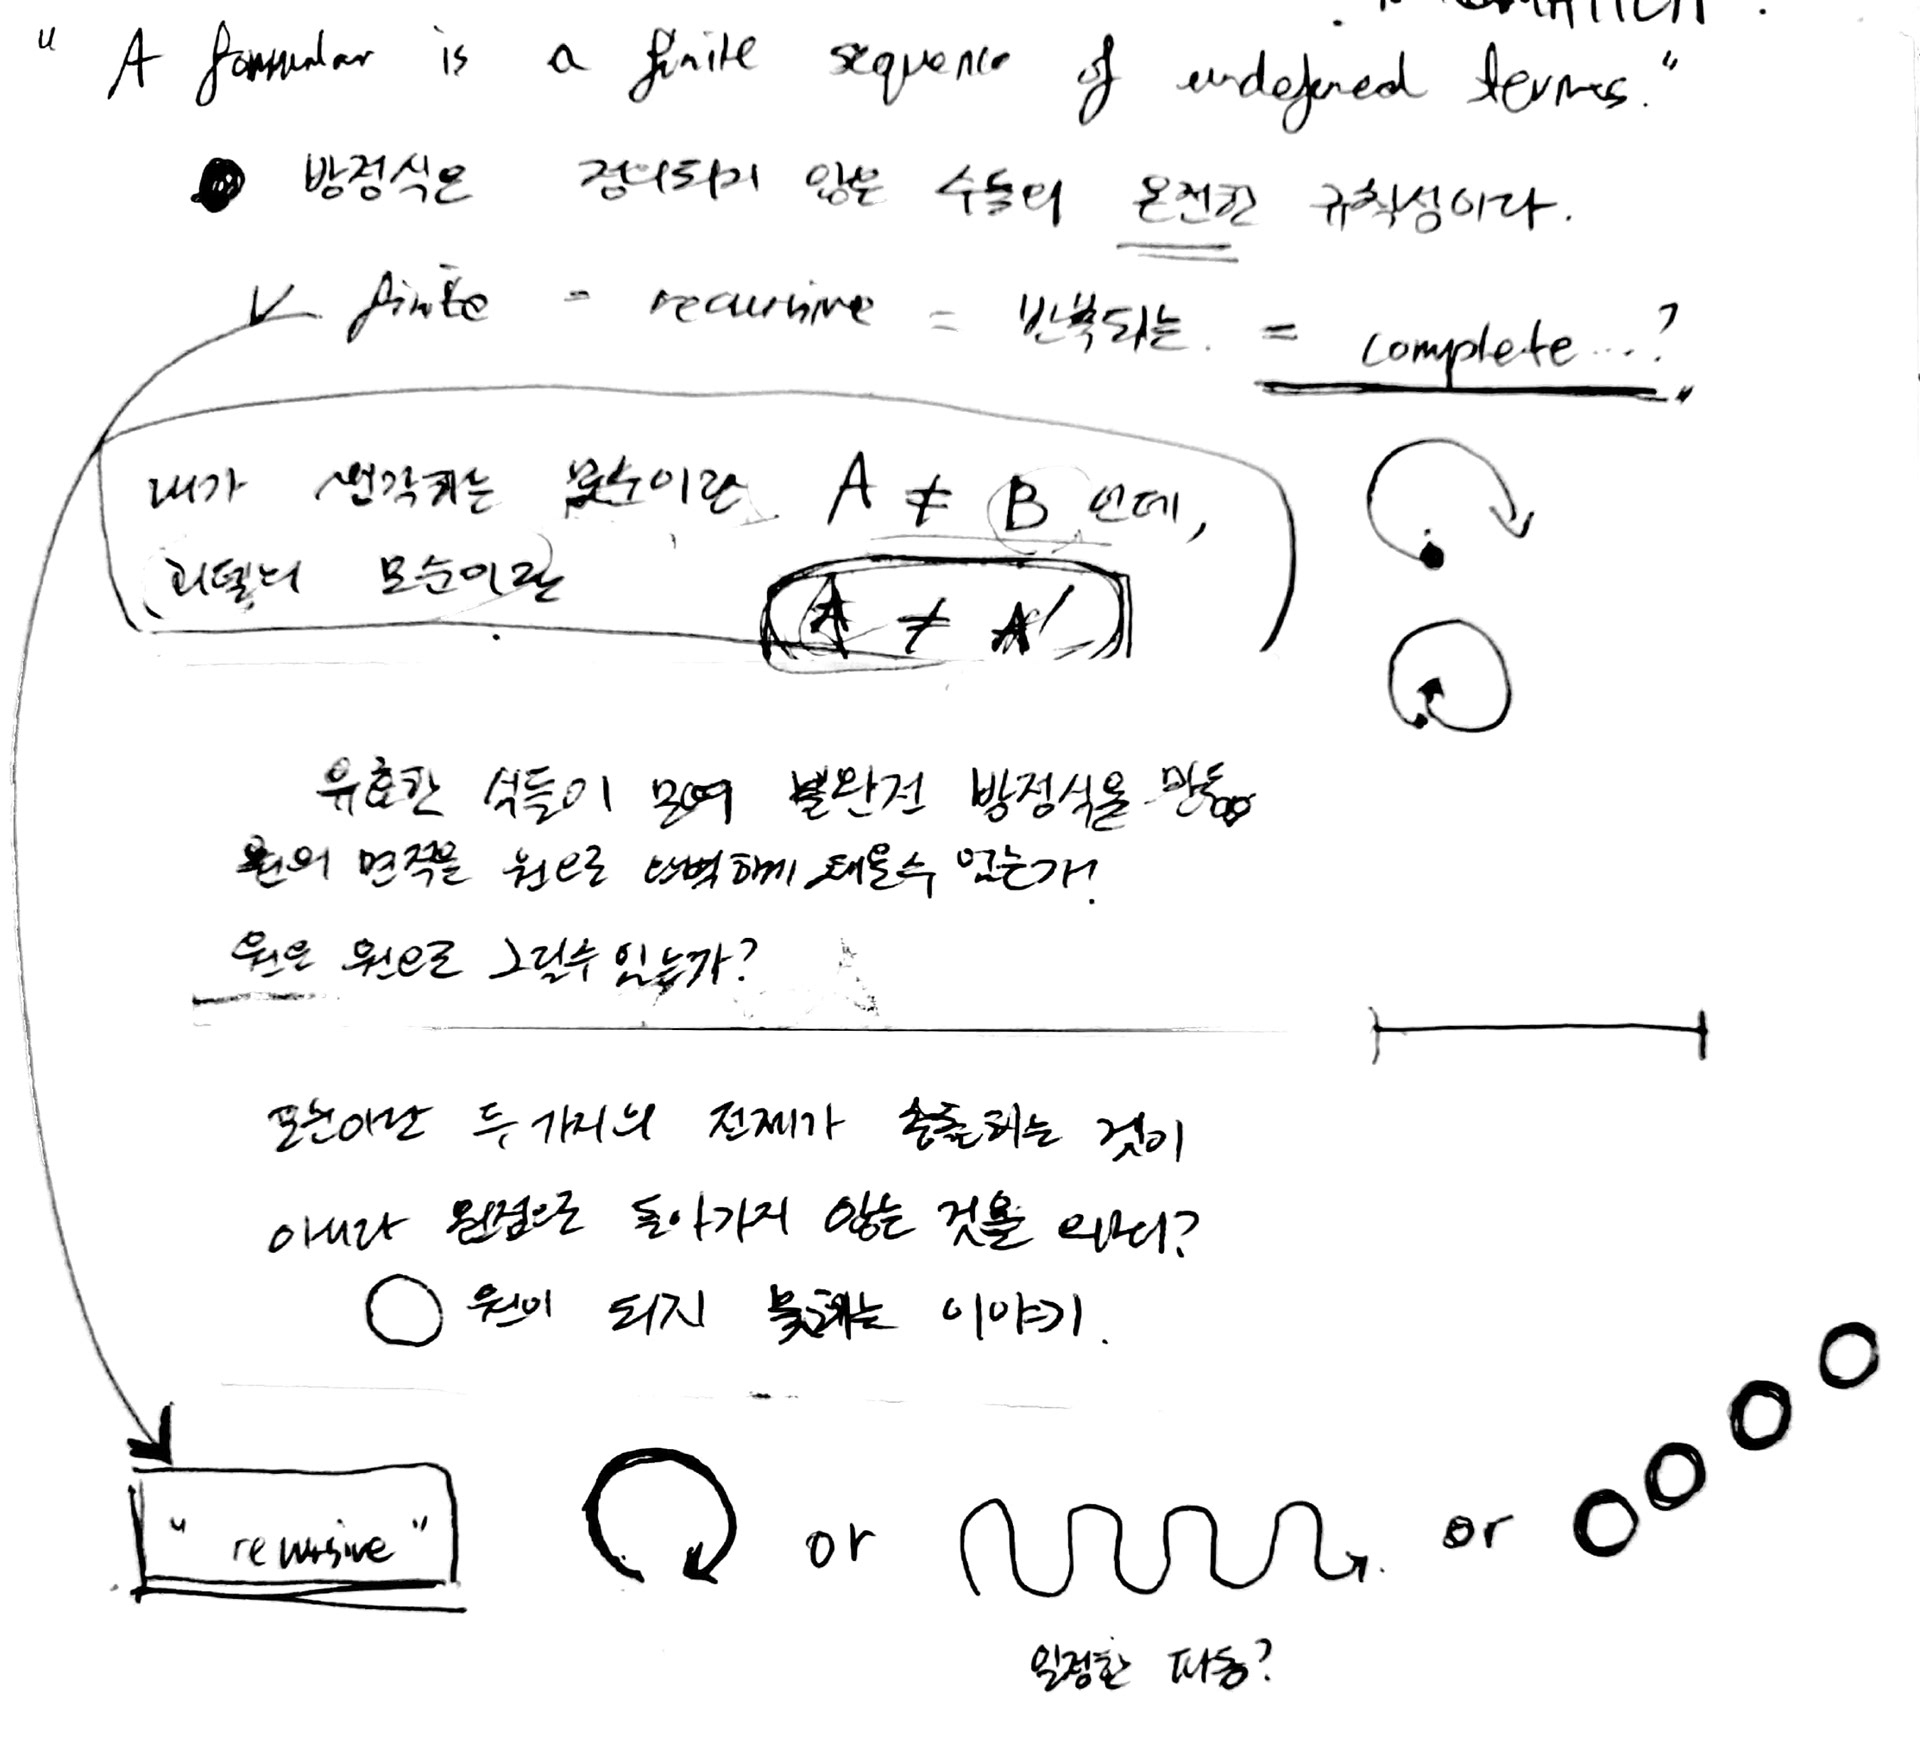 " A formular is a finite sequence of undefined terms."
방정식은 정의되지 않은 수들의 온전한 규칙성이다.
finite = recursive = 반복되는. = complete...?
내가 생각하는 모순이란 A ≠ B 인데,
괴델의 모순이란 A ≠ A'
유효한 식들이 모여 불완전 방정식을 만듦
원의 면적을 원으로 완벽하게 채울수 있는가?
원은 원으로 그릴수 있는가?
모순이란 두가지의 전제가 충돌되는 것이
아니라 원점으로 돌아가지 않는 것을 의미?
원이 되지 못하는 이야기.
" recursive " or or
일정한 파동?